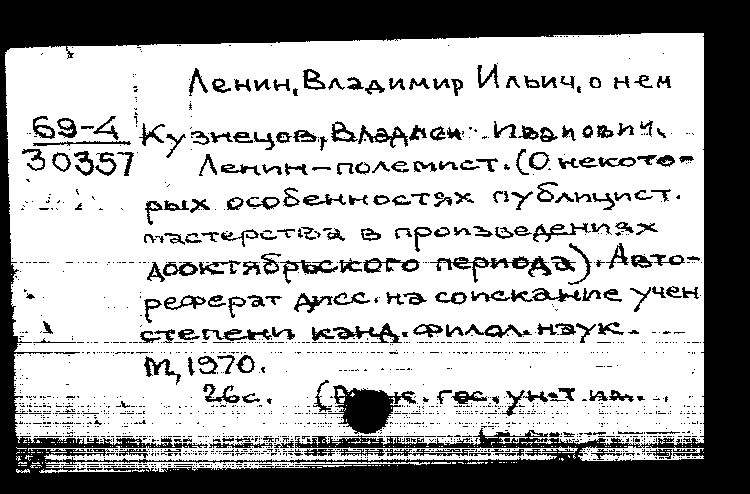 Ленин, Владимир Ильич, о нем
69-4
30357
Кузнецов, Владлен Иванович.
Ленин-полемист. (О некото-
рых особенностях публицист.
мастерства в произведениях
дооктябрьского периода). Авто-
реферат дисс. на соискание учен
степени канд. филол. наук.
М, 1970.
26с. гос. ун-т им.